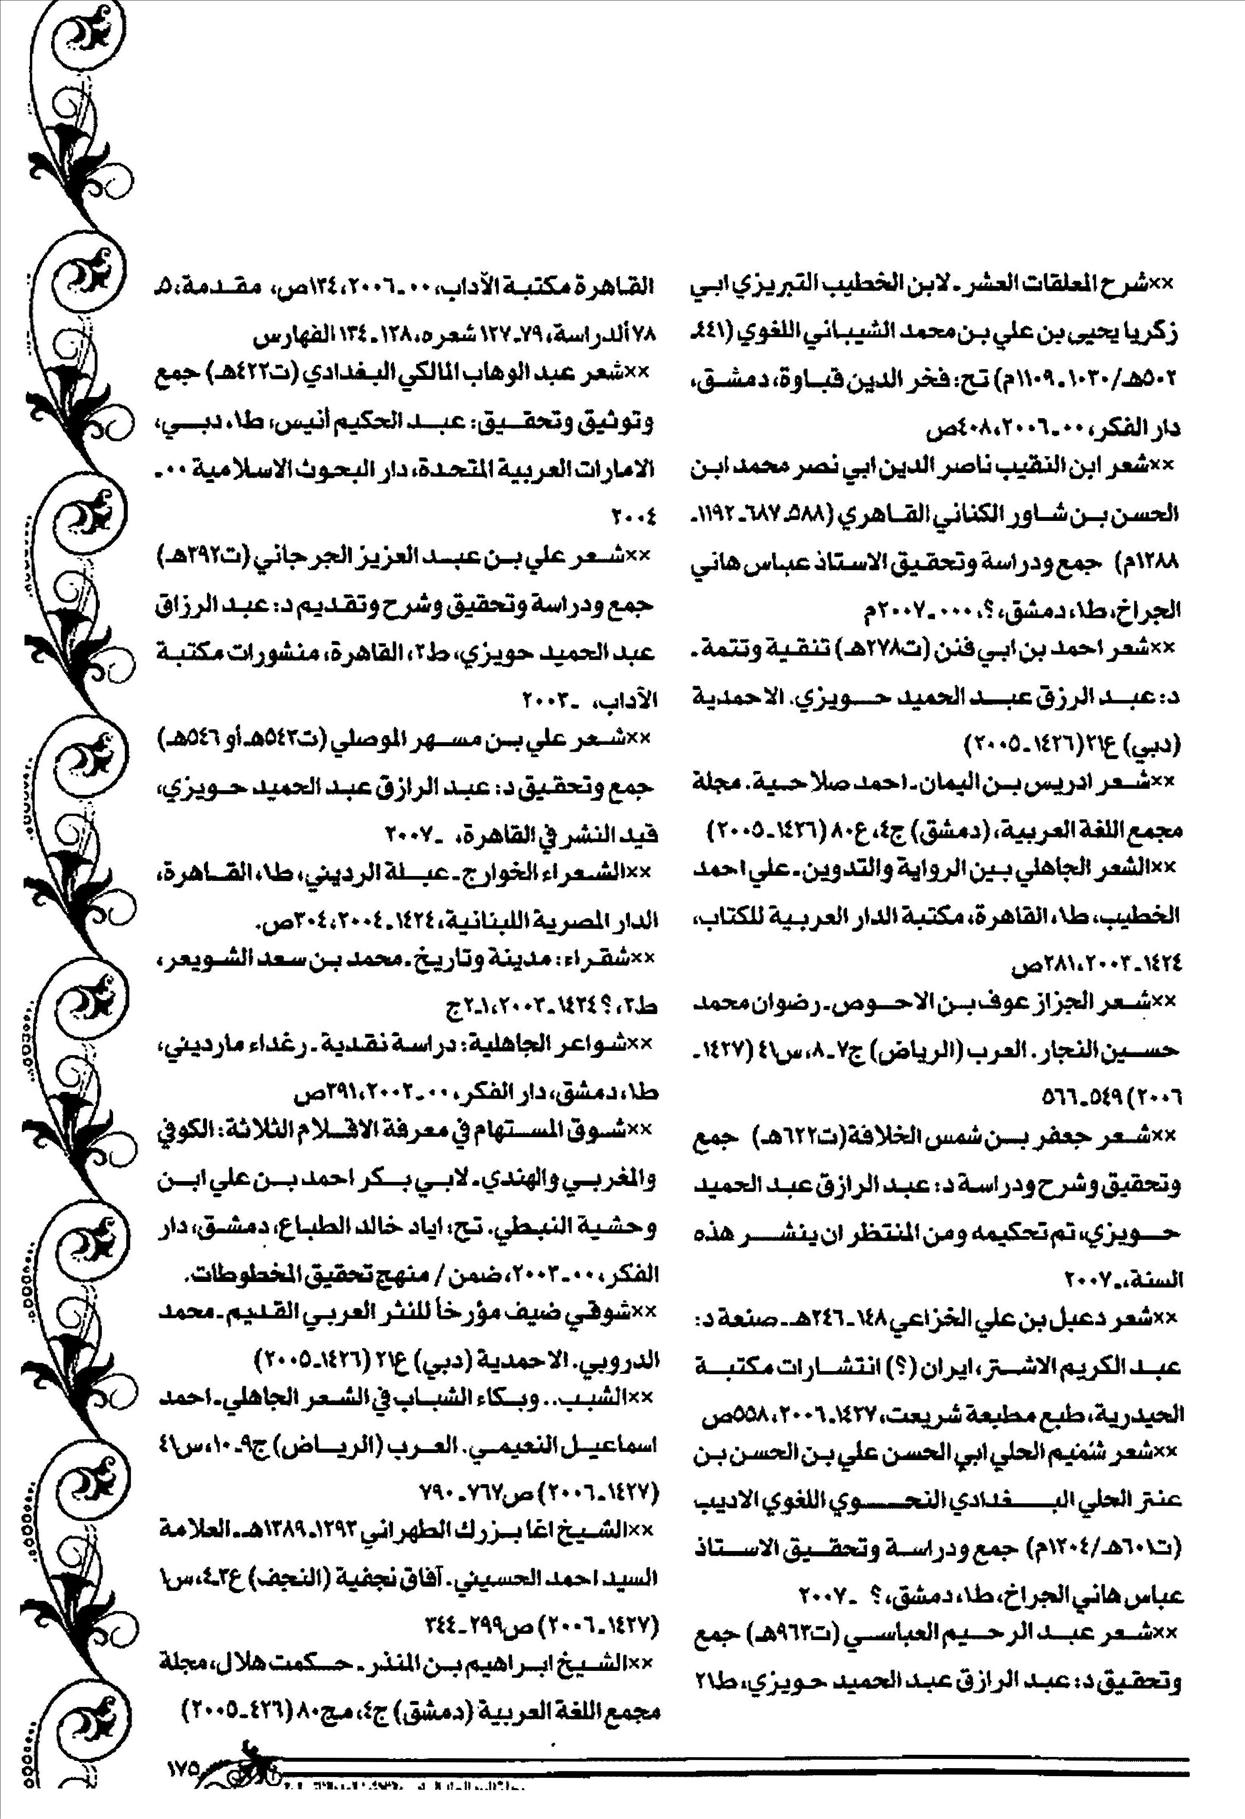 ××شرح المعلقات العشر ـ لابن الخطيب التبريزي ابي
زكريا يحيى بن علي بن محمد الشيباني اللغوي (٤٤١ـ
٥٠٢هـ/١٠٣٠ـ١١٠٩م) تح: فخر الدين قباوة، دمشق،
دار الفكر، ٠٠ـ٢٠٠٦، ٤٠٨ص
××شعر ابن النقيب ناصر الدين ابي نصر محمد ابن
الحسن بن شاور الكناني القاهري (٥٨٨ـ٦٨٧ـ١١٩٢ـ
١٢٨٨م) جمع ودراسة وتحقيق الاستاذ عباس هاني
الجراخ، ط١، دمشق، ؟، ٠٠٠ـ٢٠٠٧م
××شعر احمد بن ابي فنن (ت٢٧٨هـ) تنقية وتتمة ـ
د: عبد الرزق عبد الحميد حويزي. الاحمدية
(دبي) ع٢١(١٤٢٦ـ٢٠٠٥)
××شعر ادريس بن اليمان ـ احمد صلاحية. مجلة
مجمع اللغة العربية، (دمشق) ج٤، ع٨٠ (١٤٢٦ـ٢٠٠٥)
××الشعر الجاهلي بين الرواية والتدوين ـ علي احمد
الخطيب، ط١، القاهرة، مكتبة الدار العربية للكتاب،
١٤٢٤ـ٢٠٠٣، ٢٨١ص
××شعر الجزاز عوف بن الاحوص ـ رضوان محمد
حسين النجار. العرب (الرياض) ج٧ـ٨، س٤١ (١٤٢٧ـ
٢٠٠٦) ٥٤٩ـ٥٦٦
××شعر جعفر بن شمس الخلافة(ت٦٢٢هـ) جمع
وتحقيق وشرح ودراسة د: عبد الرازق عبد الحميد
حويزي، تم تحكيمه ومن المنتظر ان ينشر هذه
السنة، ـ٢٠٠٧
××شعر دعبل بن علي الخزاعي ١٤٨ـ٢٤٦هـ ـ صنعة د:
عبد الكريم الاشتر، ايران (؟) انتشارات مكتبة
الحيدرية، طبع مطبعة شريعت، ١٤٢٧ـ٢٠٠٦، ٥٥٨ص
××شعر شُميم الحلي ابي الحسن علي بن الحسن بن
عنتر الحلي البغدادي النحوي اللغوي الاديب
(ت٦٠١هـ/١٢٠٤م) جمع ودراسة وتحقيق الاستاذ
عباس هاني الجراخ، ط١، دمشق، ؟ ـ٢٠٠٧
××شعر عبد الرحيم العباسي (ت٩٦٣هـ) جمع
وتحقيق د: عبد الرازق عبد الحميد حويزي، ط٢١
القاهرة مكتبة الآداب، ٠٠ـ٢٠٠٦، ١٣٤ص، مقدمة، ٥ـ
٧٨ألدراسة، ٧٩ـ١٢٧ شعره، ١٢٨ـ١٣٤ الفهارس
××شعر عبد الوهاب المالكي البغدادي (ت٤٢٢هـ) جمع
وتوثيق وتحقيق: عبد الحكيم أنيس، ط١، دبي،
الامارات العربية المتحدة، دار البحوث الاسلامية ٠٠ـ
٢٠٠٤
××شعر علي بن عبد العزيز الجرجاني (ت٢٩٢هـ)
جمع ودراسة وتحقيق وشرح وتقديم د: عبد الرزاق
عبد الحميد حويزي، ط٢، القاهرة، منشورات مكتبة
الآداب، ـ٢٠٠٣
××شعر علي بن مسهر الموصلي (ت٥٤٣هـ أو ٥٤٦هـ)
جمع وتحقيق د: عبد الرازق عبد الحميد حويزي،
قيد النشر في القاهرة، ـ٢٠٠٧
××الشعراء الخوارج ـ عبلة الرديني، ط١، القاهرة،
الدار المصرية اللبنانية، ١٤٢٤ـ٢٠٠٤، ٣٠٤ص.
××شقراء: مدينة وتاريخ ـ محمد بن سعد الشويعر،
ط٢، ؟ ١٤٢٤ـ٢٠٠٣، ١ـ٢ج
××شواعر الجاهلية: دراسة نقدية ـ رغداء مارديني،
ط١، دمشق، دار الفكر، ٠٠ـ٢٠٠٢، ٣٩١ص
××شوق المستهام في معرفة الاقلام الثلاثة: الكوفي
والمغربي والهندي ـ لابي بكر احمد بن علي ابن
وحشية النبطي. تح: اياد خالد الطباع، دمشق، دار
الفكر، ٠٠ـ٢٠٠٣، ضمن / منهج تحقيق المخطوطات.
××شوقي ضيف مؤرخاً للنثر العربي القديم ـ محمد
الدروبي. الاحمدية (دبي) ع٢١ (١٤٢٦ـ٢٠٠٥)
××الشبب.. وبكاء الشباب في الشعر الجاهلي ـ احمد
اسماعيل النعيمي. العرب (الرياض) ج٩ـ١٠، س٤١
(١٤٢٧ـ٢٠٠٦) ص٧٦٧ـ٧٩٠
××الشيخ اغا بزرك الطهراني ١٢٩٣ـ١٣٨٩هـ ـ العلامة
السيد احمد الحسيني. آفاق نجفية (النجف) ع٣ـ٤، س١
(١٤٢٧ـ٢٠٠٦) ص٢٩٩ـ٣٤٤
××الشيخ ابراهيم بن المنذر ـ حكمت هلال، مجلة
مجمع اللغة العربية (دمشق) ج٤، مج٨٠ (٤٢٦ـ٢٠٠٥)
١٧٥